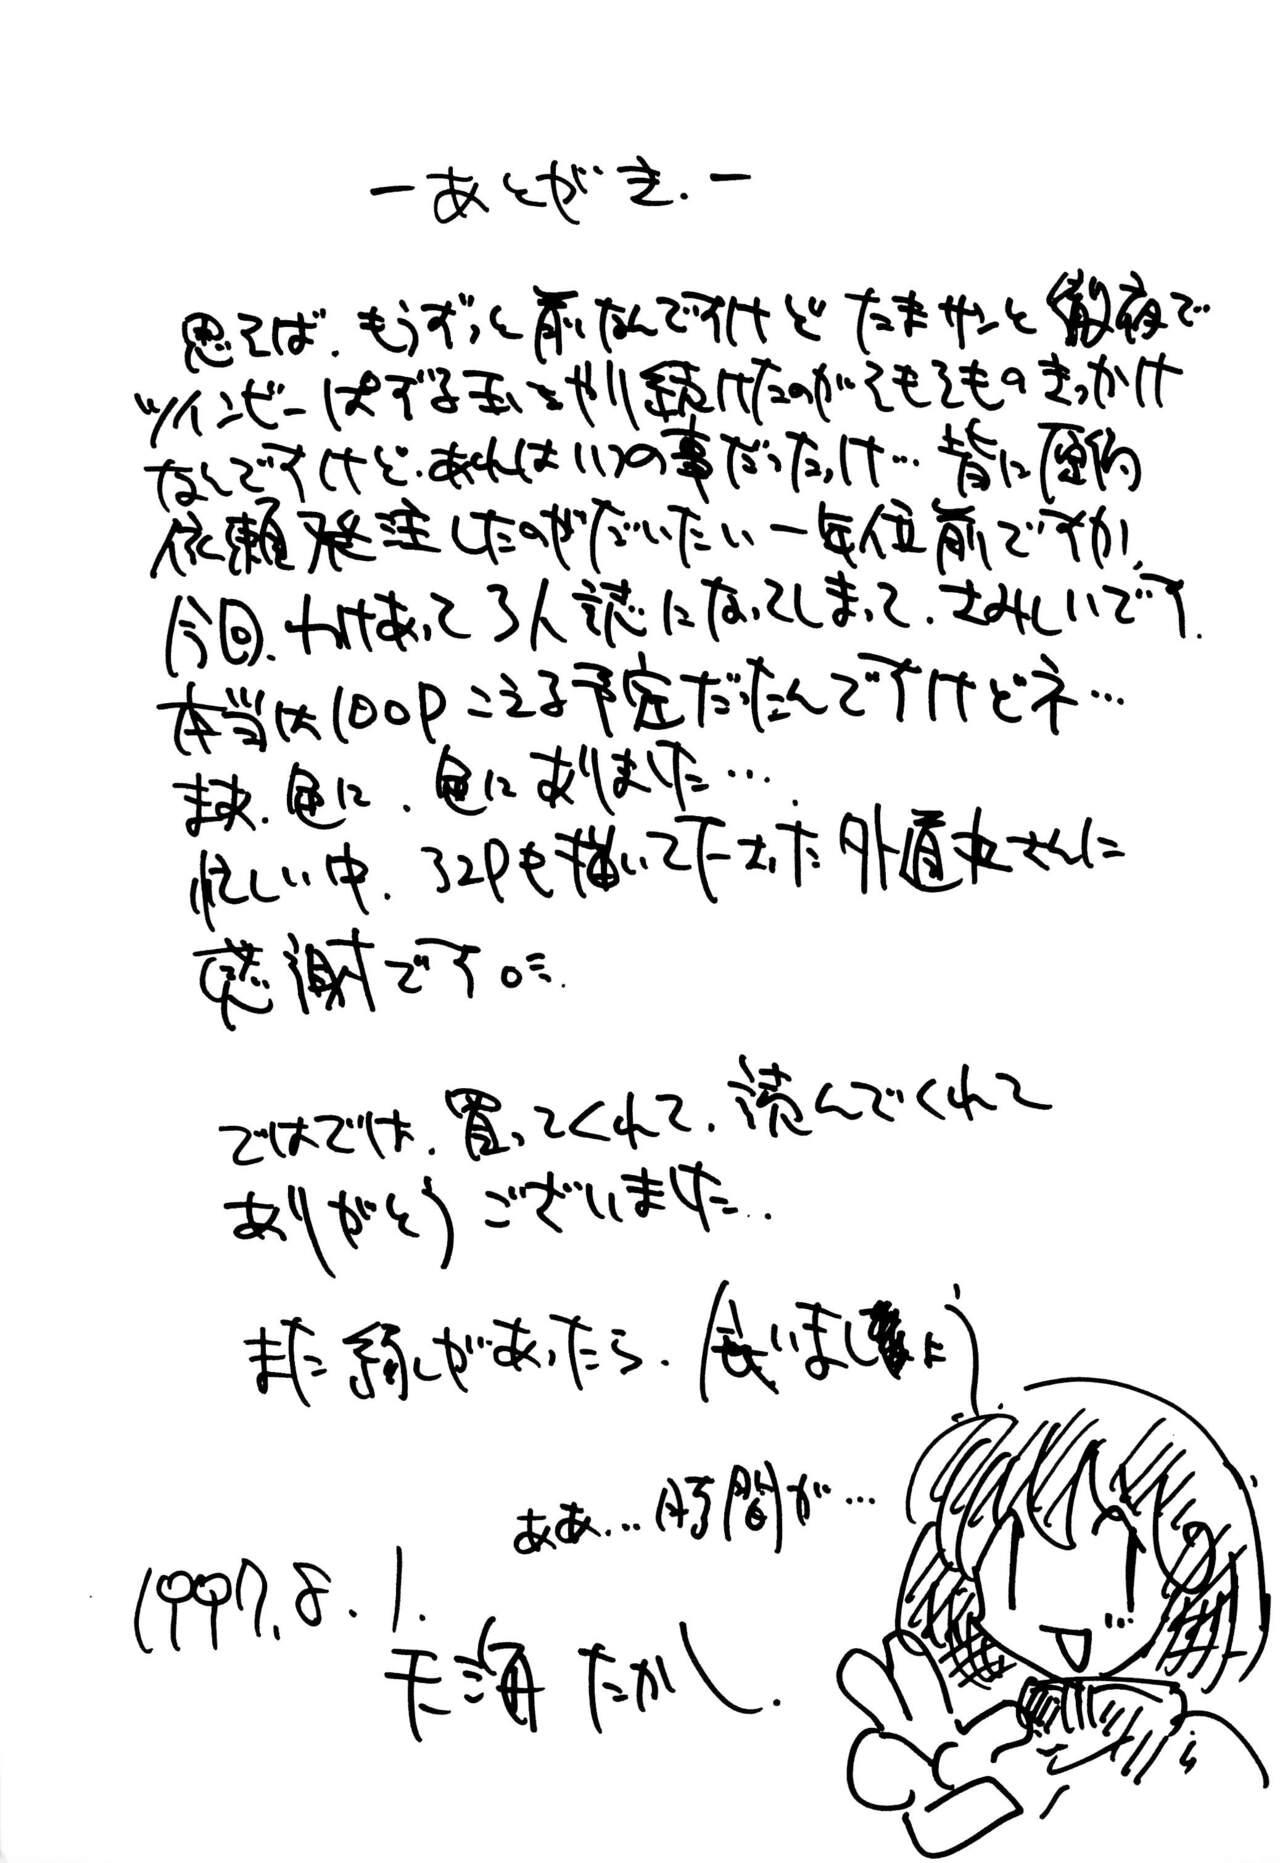 ーあとがき.ー
思えば、もうずっと前なんですけど たまサンと徹夜で
ツインビーぱずる玉をやり続けたのがそもそものきっかけ
なんですけど、あれはいつの事だったっけ… 皆に
依頼発注したのがだいたい一年位前ですか、
今回、わけあって3人誌になってしまって、さみしいです
本当は100Pこえる予定だったんですけどネ…
まあ、色々、色々ありました…
忙しい中、32Pも描いて下さった外道丸さんに
感謝です。
ではでは、買ってくれて、読んでくれて
ありがとうございました.
また縁があったら、会いましょう
ああ…時間が…
1997.8.1.
天海たかし.